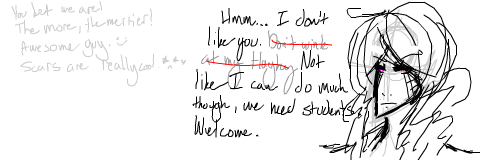 You bet we are!
The more, the merrier!
Awesome guy. :)
Scars are really cool ^.^
Hmm... I don't
like you. Don't wink
at me. Not
like I can do much
though, we need students.
Welcome.